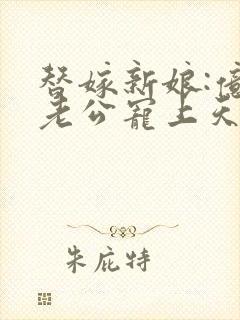 替嫁新娘:
老公寵上天
朱庇特